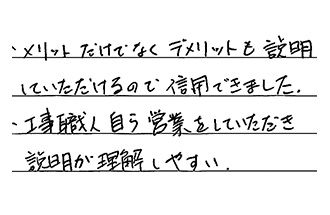 ・メリットだけでなくデメリットも説明
していただけるので信用できました.
・工事職人自ら営業をしていただき
説明が理解しやすい.